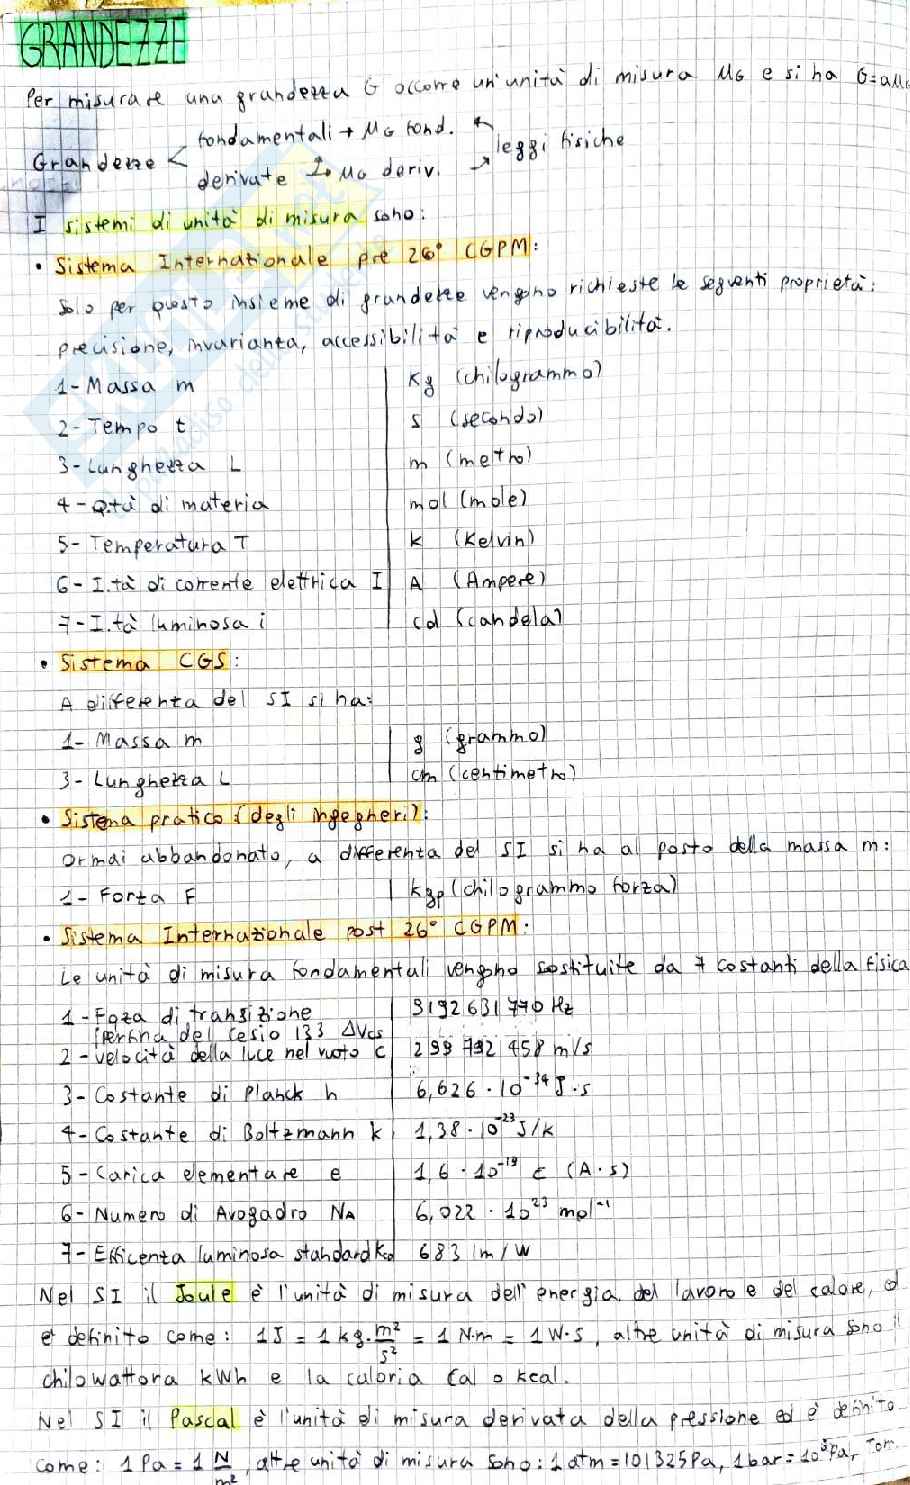 GRANDEZZE
Per misurare una grandezza G occorre un'unità di misura μG e si ha G=aμG
fondamentali → μG fond.
leggi fisiche
Grandezze <
derivate → μG deriv.
I sistemi di unità di misura sono:
• Sistema Internazionale pre 26° CGPM:
Solo per questo insieme di grandezze vengono richieste le seguenti proprietà:
precisione, invarianza, accessibilità e riproducibilità.
1- Massa m | kg (chilogrammo)
2- Tempo t | s (secondo)
3- Lunghezza L | m (metro)
4- Q.tà di materia | mol (mole)
5- Temperatura T | k (Kelvin)
6- I.tà di corrente elettrica I | A (Ampere)
7- I.tà luminosa i | cd (candela)
• Sistema CGS:
A differenza del SI si ha:
1- Massa m | g (grammo)
3- Lunghezza L | cm (centimetro)
• Sistema pratico (degli ingegneri):
Ormai abbandonato, a differenza del SI si ha al posto della massa m:
1- Forza F | kgp (chilogrammo forza)
• Sistema Internazionale post 26° CGPM:
Le unità di misura fondamentali vengono sostituite da 7 costanti della fisica
1- di transizione | 9192631770 Hz
del cesio 133 ΔVCs
2- velocità della luce nel vuoto c | 299 792 458 m/s
3- Costante di Planck h | 6,626 · 10⁻³⁴ J·s
4- Costante di Boltzmann k | 1,38 · 10⁻²³ J/k
5- Carica elementare e | 1,6 · 10⁻¹⁹ C (A·s)
6- Numero di Avogadro NA | 6,022 · 10²³ mol⁻¹
7- Efficenza luminosa standard Kcd | 683 lm/W
Nel SI il Joule è l'unità di misura dell'energia, del lavoro e del calore, ed
è definito come: 1J = 1 kg·m²/s² = 1 N·m = 1 W·s, altre unità di misura sono il
chilowattora kWh e la caloria Cal o kcal.
Nel SI il Pascal è l'unità di misura derivata della pressione ed è definito
come: 1 Pa = 1 N/m², altre unità di misura sono: 1 atm = 101325 Pa, 1 bar = 10⁵ Pa, Torr